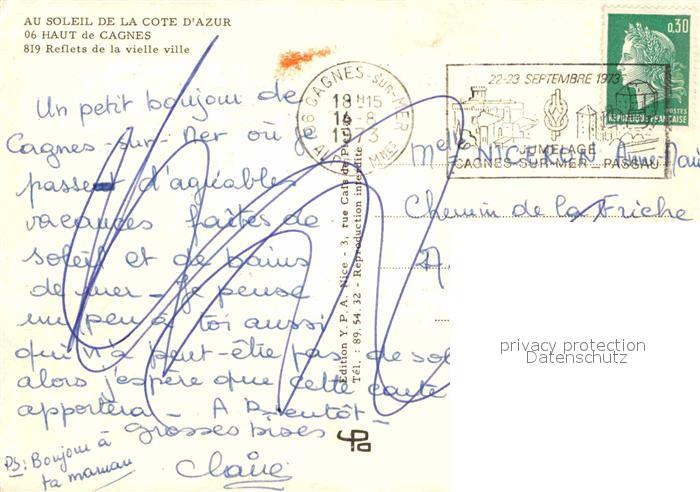 AU SOLEIL DE LA COTE D'AZUR
06 HAUT de CAGNES
819 Reflets de la vielle ville
Un petit boujour de
Cagnes-sur-Mer où je
passent d'agréables
vacances faites de
soleil et de bains
de mer - Je pense
un peu à toi aussi
qui n'a peut-être pas de sol
alors j'espère que cette carte
apportera - A Bientôt -
Grosses bises
Claire
PS: Boujour à
ta maman
06 CAGNES-SUR-MER
18H15
16-8
1973
22-23 SEPTEMBRE 1973
JUMELAGE
CAGNES-SUR-MER _ PASSAU
0,30
POSTES
REPUBLIQUE FRANCAISE
Melle Anne
Chemin de la Friche
Edition Y. P. A. Nice - 3, rue Cais de Pierlas
Tél. : 89.54.32 - Reproduction interdite
privacy protection
Datenschutz